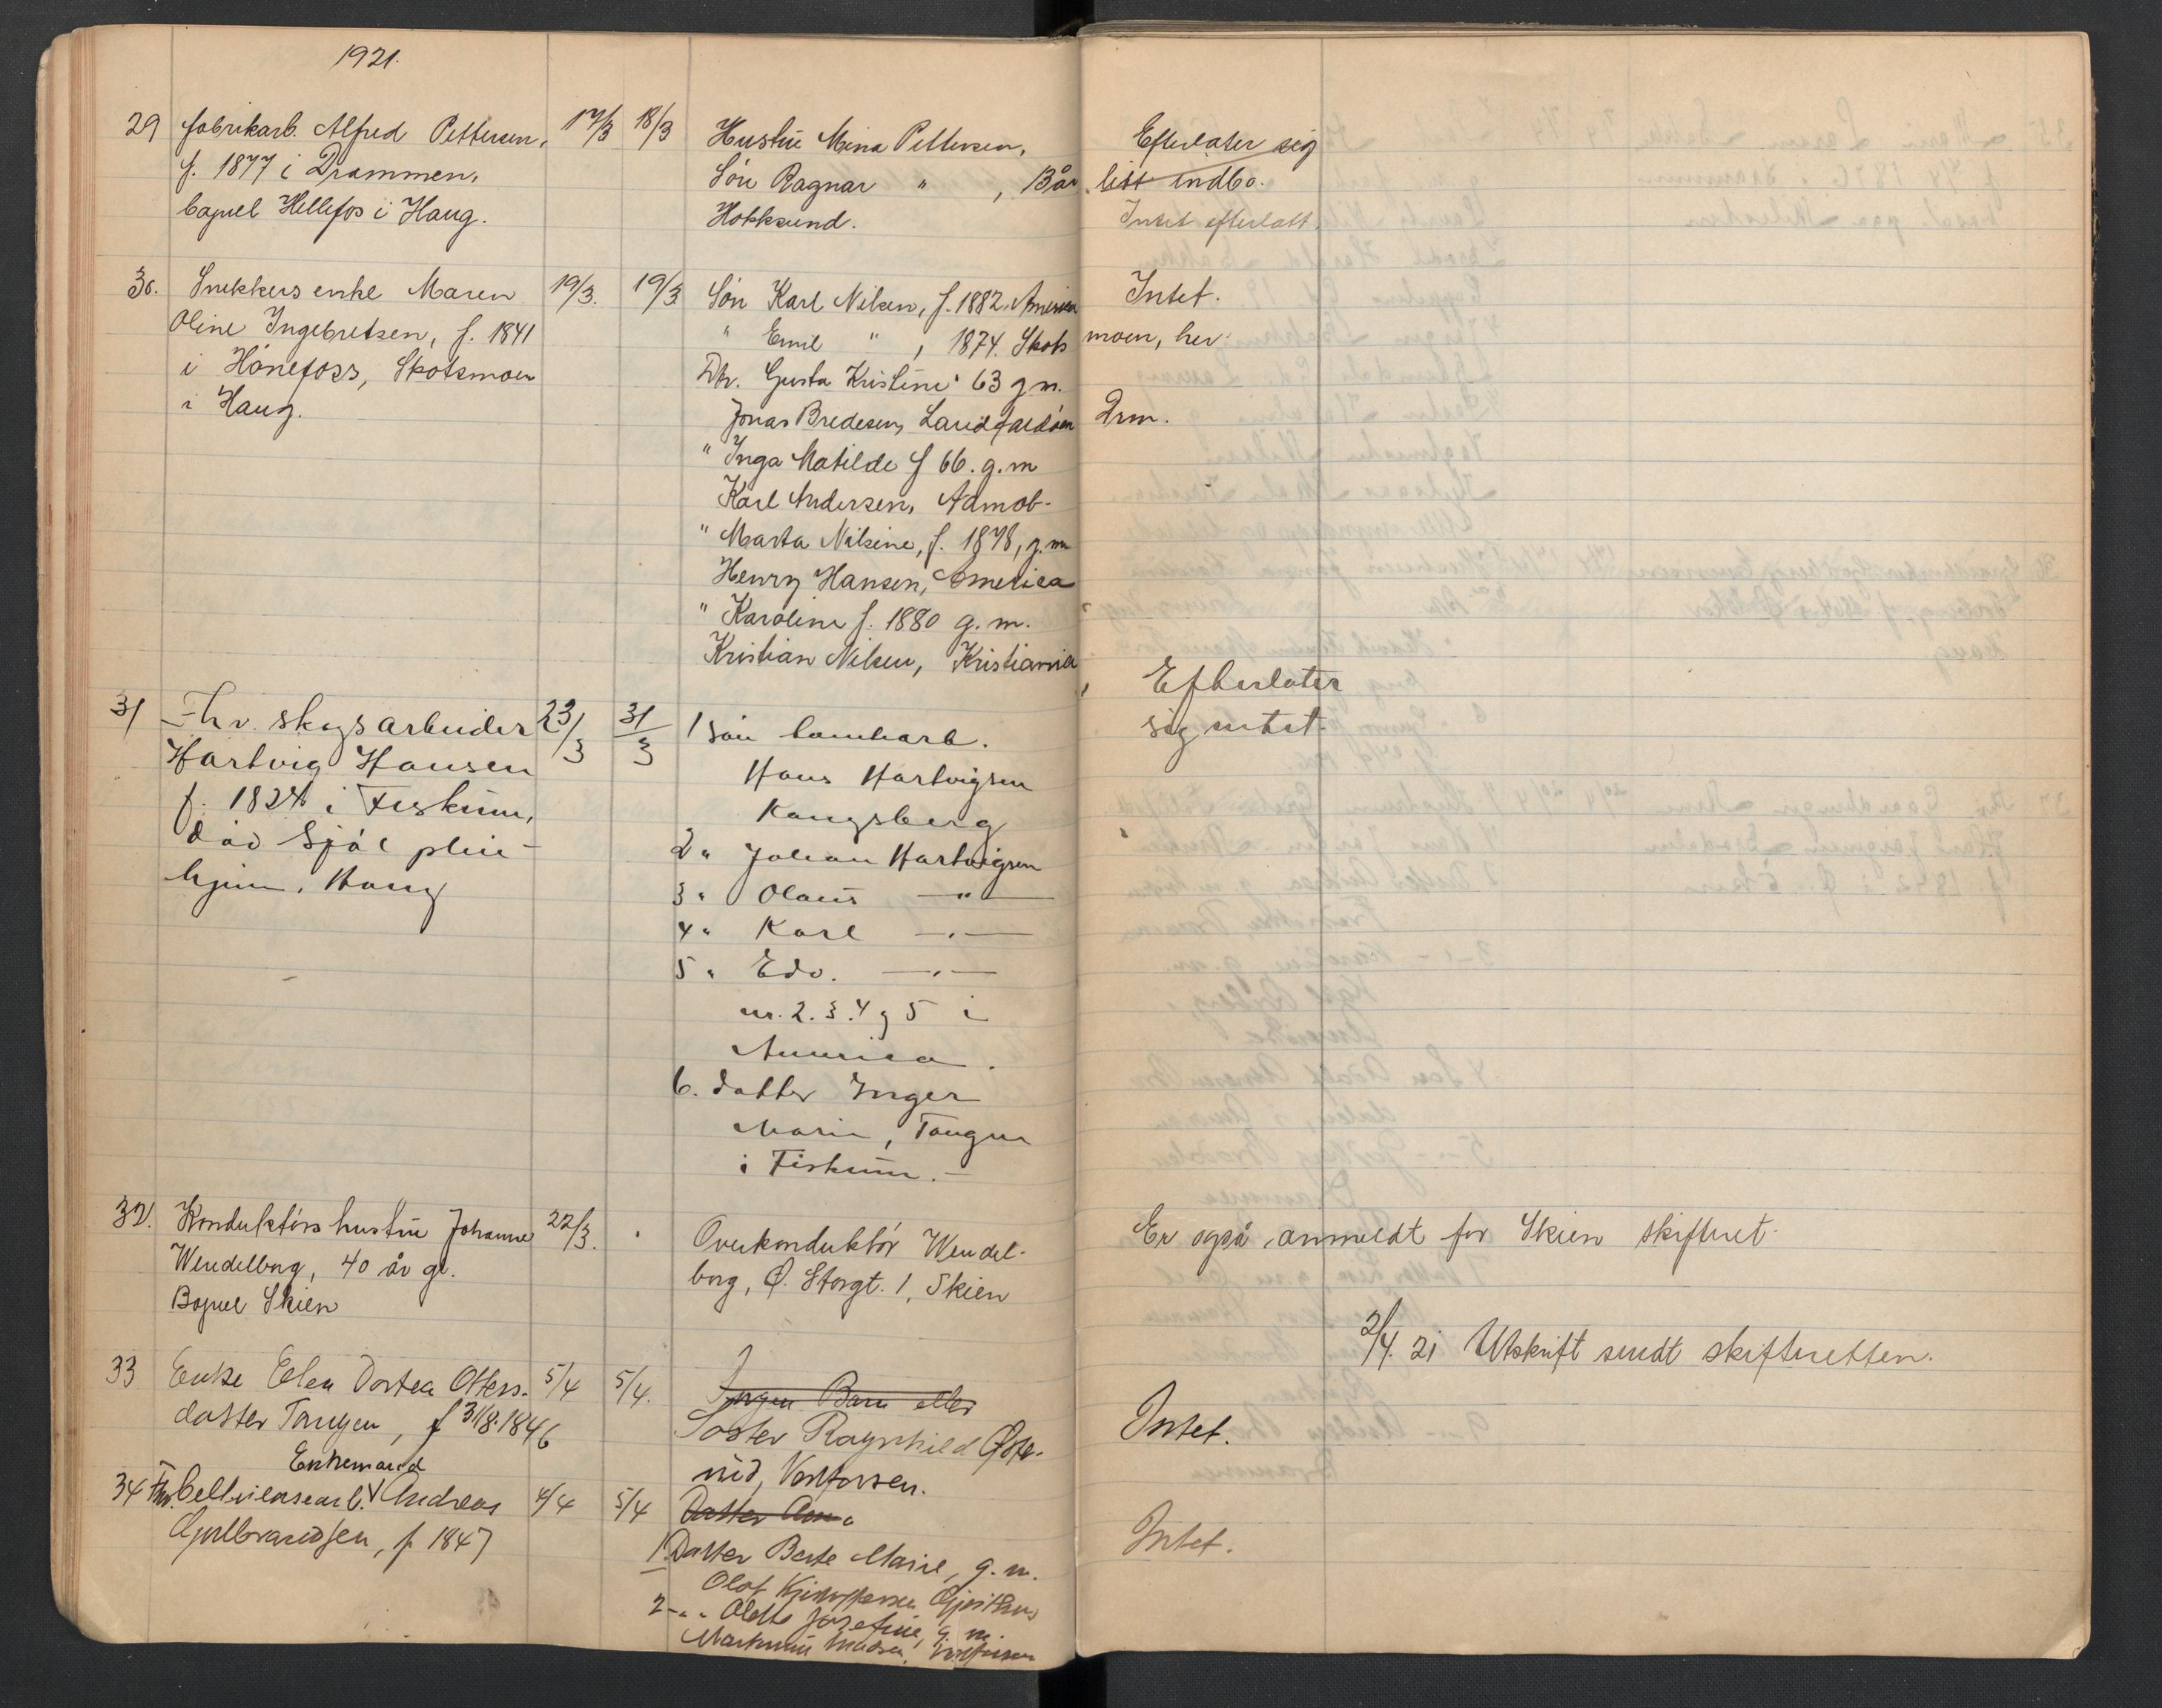 1921.
29 fabrikarb. Alfred Pettersen, 17/3 18/3 Hustru Mina Pettersen, Efterlater sig
f. 1877 i Drammen, Sön Ragnar " , 13 år litt indbo.
bopæl Hellefos i Haug. Hokksund. Intet efterlatt.
30. Snekkers enke Maren 19/3. 19/3 Sön Karl Nilsen, f. 1882. America Intet.
Oline Ingebretsen, f. 1841 " Emil " , 1874. Skots moen, her
i Hönefoss, Skotsmoen Dtr. Gusta Kristine 63 g m.
i Haug. Jonas Bredesen, Landfaldöen Drm.
" Inga Matilde f 66. g. m
Karl Andersen, Åmot.
" Marta Nilsine, f. 1878, g. m
Henry Hansen, America
" Karoline f. 1880 g. m.
Kristian Nilsen, Kristiania
31 Fhv. skogsarbeider 23/3 31/3 1 sön tomtearb. Efterlater
Hartvig Hansen Hans Hartvigsen sig intet.
f. 1824 i Fiskum, Kongsberg
död Sjöl pleie- 2 " Johan Hartvigsen
hjem, Haug 3 " Olaus — " —
4 " Karl — " —
5 " Edv. — " —
nr. 2. 3. 4 g 5 i
America.
6. datter Inger
Marie, Tangen
i Fiskum. —
32. Konduktörs hustru Johanne 22/3. Overkonduktör Wendel- Er også anmeldt for Skien skifteret.
Wendelborg, 40 år gl. borg, Ø. Storgt. 1, Skien
Bopæl Skien
2/4. 21 Utskrift sendt skifteretten.
33 Enke Elen Dortea Otters- 5/4 5/4. Ingen Barn eller
datter Tangen, f 31/8. 1846 Söster Ragnhild Intet.
Vestfossen.
Enkemand
34 Fhv. Cellulosearb. Andreas 4/4 5/4 Datter Anna
Gulbrandsen, f 1847 1 Datter Berte Marie, g. m. Intet.
Olaf Kristoffersen Gjeithus
2 - " " Olette Josefine, g. m.
Madsen, Vestfossen